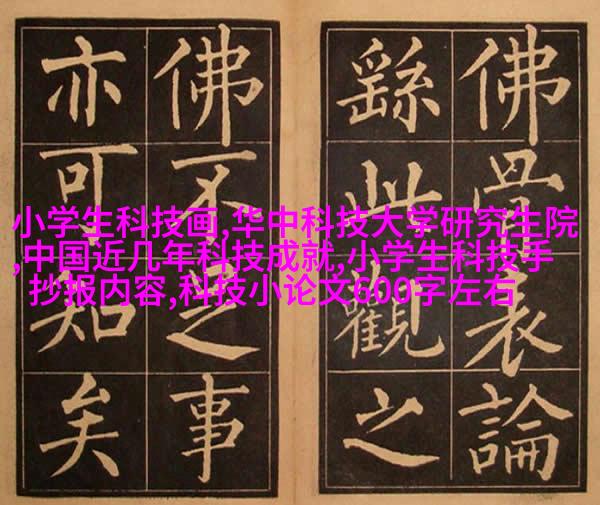 佛骨表論
繇此觀之
佛不足事
亦可知矣
小学生科技画,华中科技大学研究生院
,中国近几年科技成就,小学生科技手
抄报内容,科技小论文600字左右